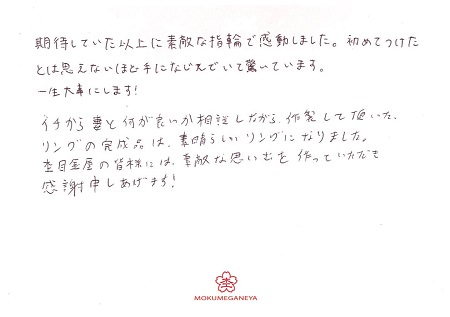 期待していた以上に素敵な指輪で感動しました。初めてつけた
とは思えないほど手になじんでいて驚いています。
一生大事にします!
イチから妻と何が良いか相談しながら、作製して頂いた
リングの完成品は、素晴らしいリングになりました。
杢目金屋の皆様には、素敵な思い出を作っていただき
感謝申しあげます!
MOKUMEGANEYA